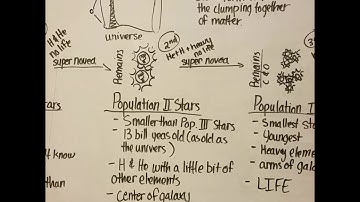 the clumping together
of matter.
universe
H & He
no life
super noved
Remains
2nd
He+H+heavy
no life
super noved
Remains
C & O
Population II Stars
- Smaller than Pop. III Stars
- 13 bill years old (as old as
the univers)
- H & He with a little bit of
other elements
- Center of galaxy
Population I
- Smallest
- Youngest
- Heavy
- arms of
- LIFE
ars
know
than